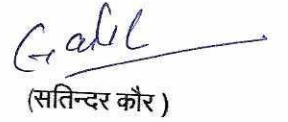 (सतिन्दर कौर )